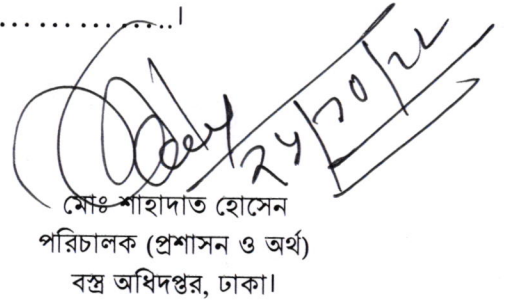 ...................।
মোঃ শাহাদাত হোসেন
পরিচালক (প্রশাসন ও অর্থ)
বস্ত্র অধিদপ্তর, ঢাকা।